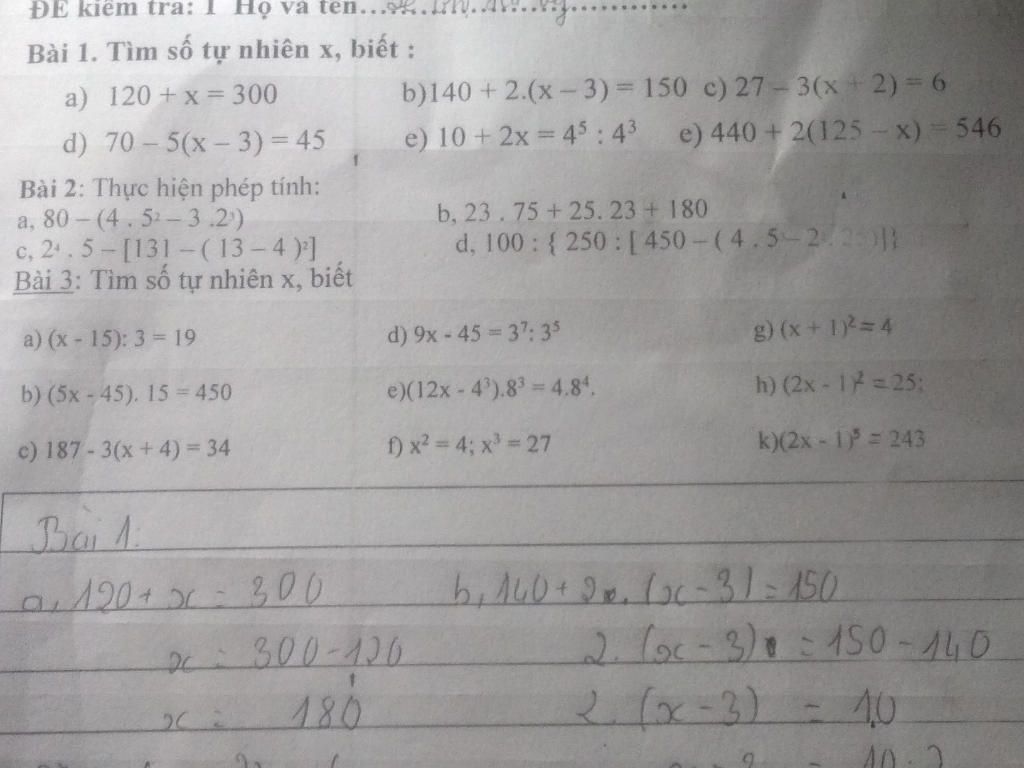 ĐỀ kiểm tra: 1 Họ và tên
Bài 1. Tìm số tự nhiên x, biết :
a) 120 + x = 300 b)140 + 2.(x – 3) = 150 c) 27 – 3(x + 2) = 6
d) 70 – 5(x – 3) = 45 e) 10 + 2x = 4⁵ : 4³ e) 440 + 2(125 – x) = 546
Bài 2: Thực hiện phép tính:
a, 80 – (4 . 5² – 3 .2³) b, 23 . 75 + 25. 23 + 180
c, 2⁴ . 5 – [131 – ( 13 – 4 )²] d, 100 : { 250 : [ 450 – ( 4 . 5 – 2
Bài 3: Tìm số tự nhiên x, biết
a) (x - 15): 3 = 19 d) 9x - 45 = 3⁷: 3⁵ g) (x + 1)² = 4
b) (5x - 45). 15 = 450 e)(12x - 4³).8³ = 4.8⁴. h) (2x - 1)² = 25;
c) 187 - 3(x + 4) = 34 f) x² = 4; x³ = 27 k)(2x - 1)⁵ = 243
Bài 1:
a, 120 + x = 300 b, 140 + 2. (x - 3) = 150
x = 300 - 120 2. (x - 3) = 150 - 140
x = 180 2. (x - 3) = 10